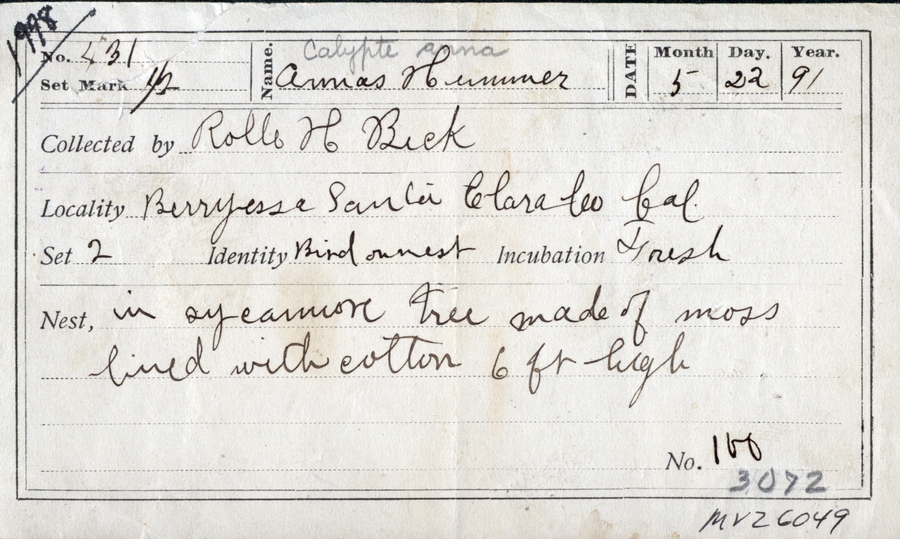 1998
Calypte anna
No. 431 Name. Annas Hummer DATE Month Day. Year.
Set Mark 1/2 5 22 91
Collected by Rollo H Beck
Locality Berryessa Santa Clara Co Cal.
Set 2 Identity Bird on nest Incubation Fresh
Nest, in sycamore tree made of moss
lined with cotton 6 ft high
No. 100
3072
MVZ 6049